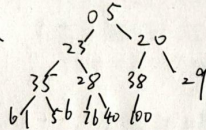 05
23 20
35 28 38 29
61 56 76 40 100